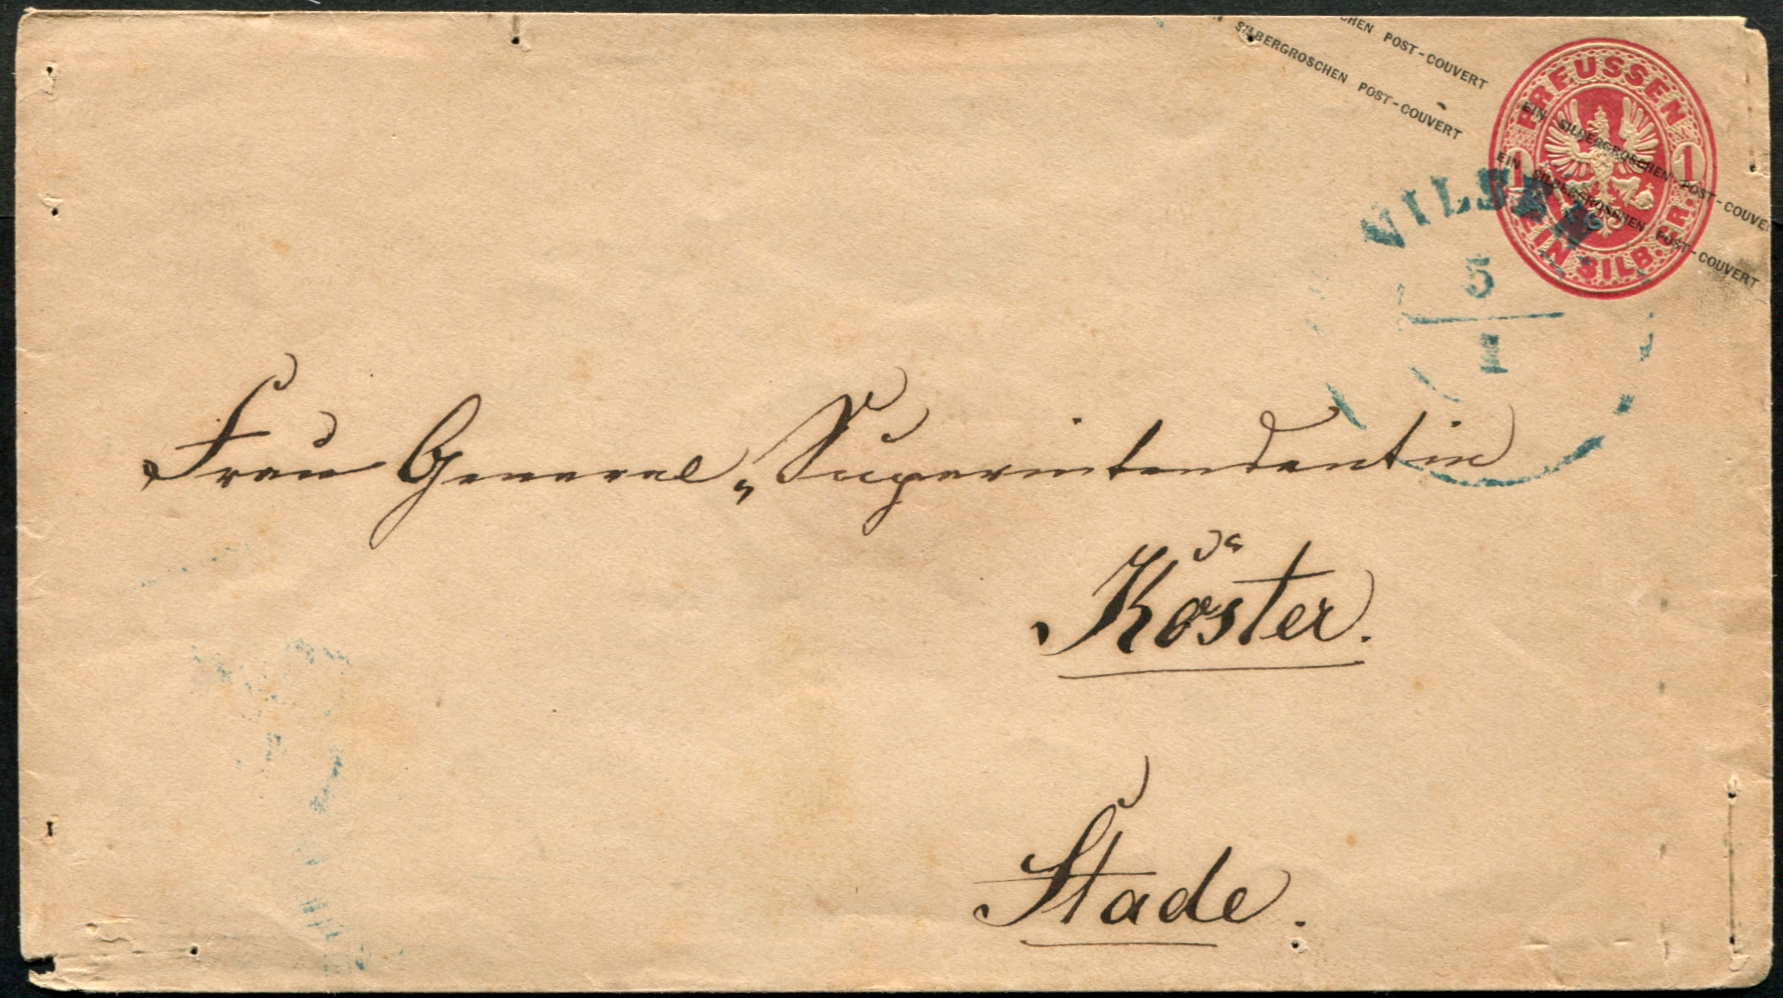 CHEN POST-COUVERT EIN SILBERGROSCHEN POST-COUVE
SILBERGROSCHEN POST-COUVERT EIN SILBERGROSCHEN POST-COUVERT
PREUSSEN
1 1
EIN SILB. GR.
VILSEN
5
1
Frau General-Superintendentin
Köster.
Stade.